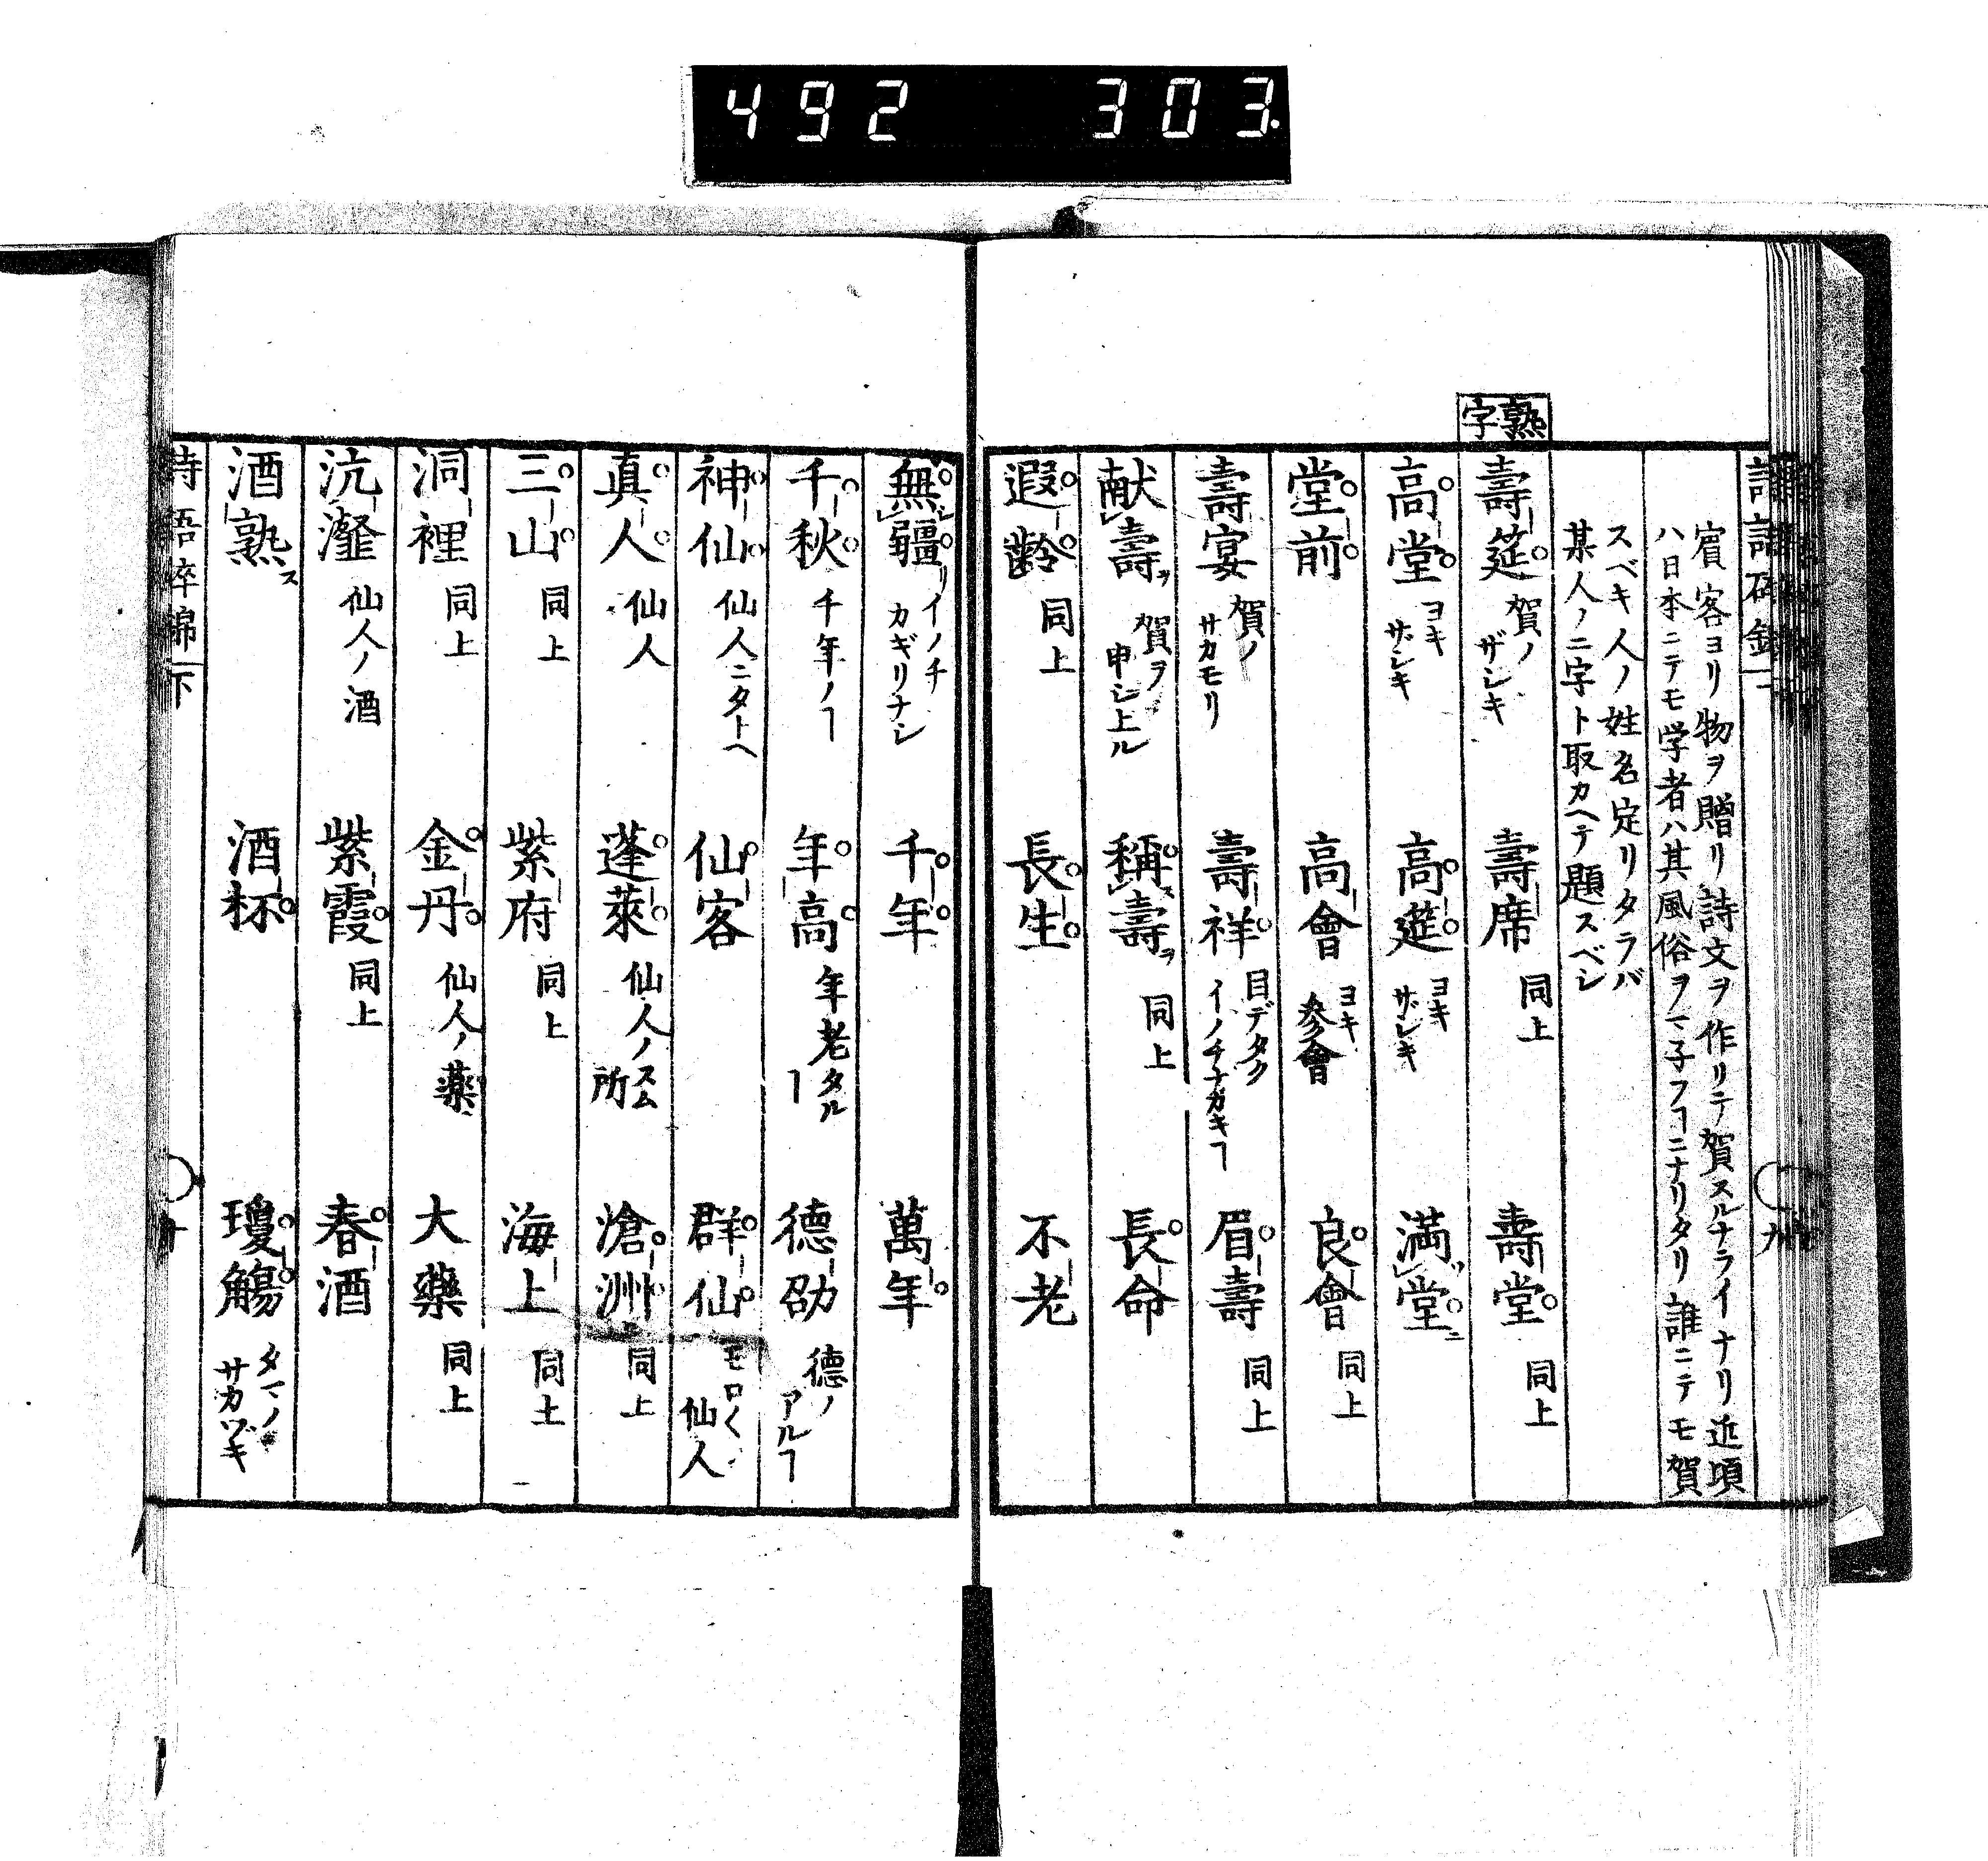 492 303.
熟字
賓客ヨリ物ヲ贈リ詩文ヲ作リテ賀スルナライナリ近頃
ハ日本ニテモ学者ハ其風俗ヲマ子フヿニナリタリ誰ニテモ賀
スベキ人ノ姓名定リタラバ
某人ノ二字ト取カヘテ題スベシ
壽筵 賀ノザシキ 壽席 同上 壽堂 同上
高堂 ヨキザシキ 高筵 ヨキザシキ 満堂
堂前 高會 ヨキ参會 良會 同上
壽宴 賀ノサカモリ 壽祥 目デタクイノチナガキヿ 眉壽 同上
献壽ヲ 賀ヲ申シ上ル 稱ス壽ヲ 同上 長命
遐齢 同上 長生 不老
無疆 イノチカギリナシ 千年 萬年
千秋 千年ノヿ 年高 年老タルヿ 徳劭 徳ノアルヿ
神仙 仙人ニタトヘ 仙客 群仙 モロ〱仙人
真人 仙人 蓬萊 仙人ノスム所 滄洲 同上
三山 同上 紫府 同上 海上 同上
洞裡 同上 金丹 仙人ノ薬 大藥 同上
沆瀣 仙人ノ酒 紫霞 同上 春酒
酒熟ス 酒杯 瓊觴 タマノサカヅキ
詩語砕錦 下